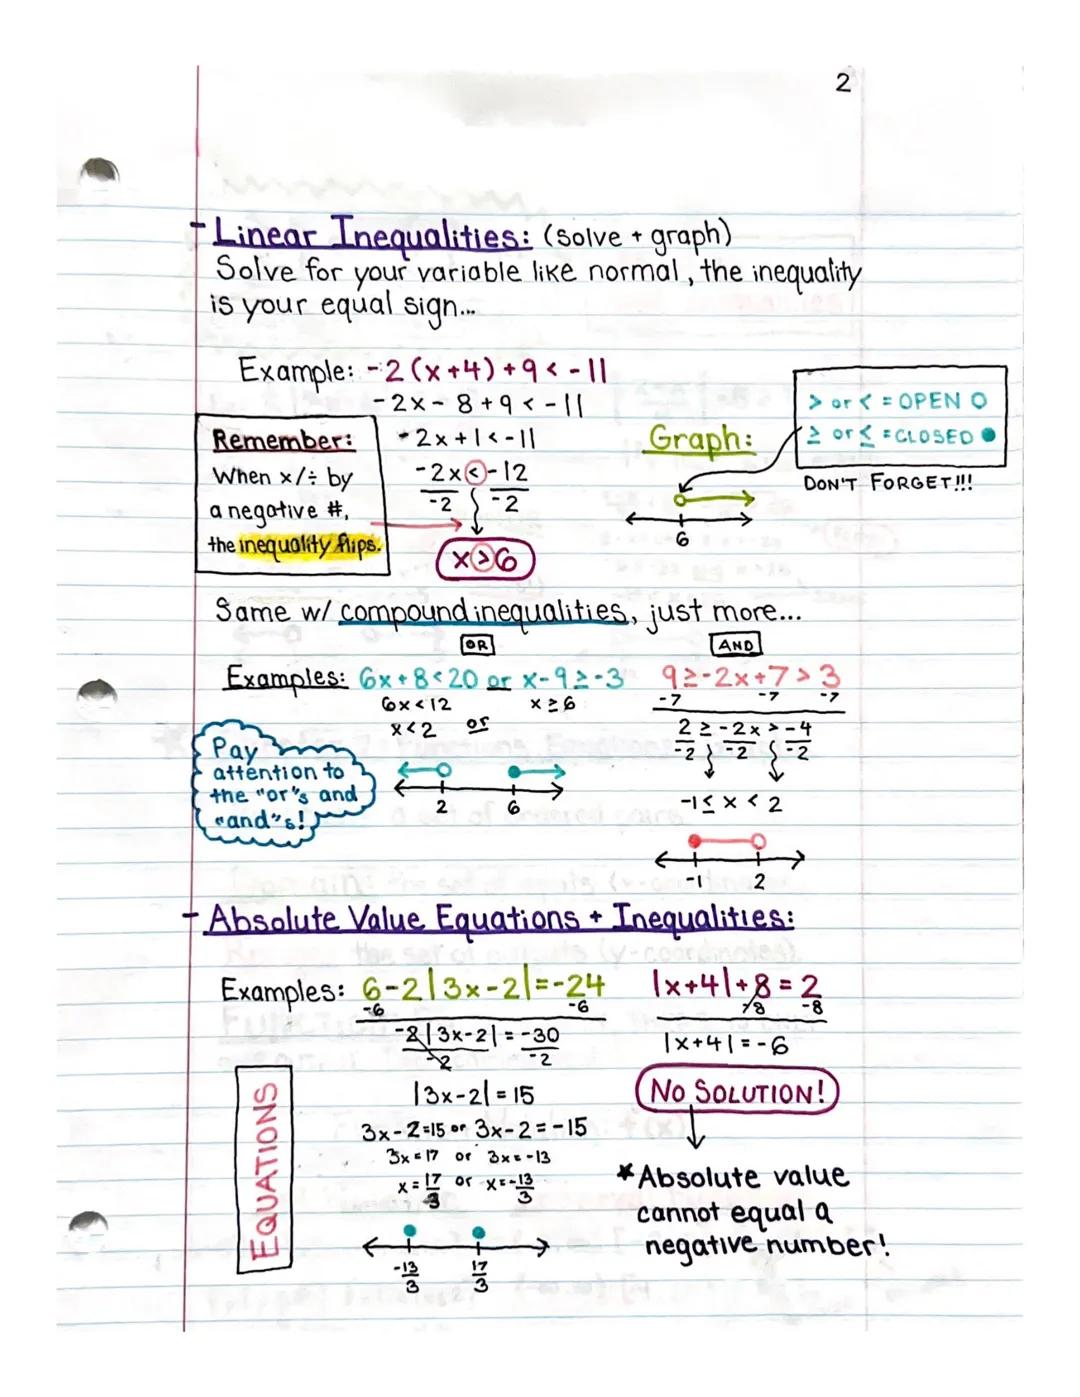 2
- Linear Inequalities: (solve + graph)
Solve for your variable like normal, the inequality
is your equal sign...
Example: -2(x+4)+9 < -11
-2x - 8 + 9 < -11
-2x + 1 < -11
-2x < -12
-2 -2
x > 6
Remember:
When x/÷ by
a negative #,
the inequality flips.
Graph:
6
> or < = OPEN ○
≥ or ≤ = CLOSED ●
DON'T FORGET!!!
Same w/ compound inequalities, just more...
OR
AND
Examples: 6x+8<20 or x-9≥-3 9≥-2x+7>3
6x<12 x≥6 -7 -7 -7
x<2 or
2≥-2x>-4
-2 -2 -2
-1≤x<2
Pay
attention to
the "or"s and
"and"s!
2 6
-1 2
- Absolute Value Equations + Inequalities:
Examples: 6-2|3x-2|=-24 |x+4|+8=2
-6 -6 -8 -8
-2|3x-2|=-30 |x+4|=-6
-2 -2
|3x-2|=15
3x-2=15 or 3x-2=-15
3x=17 or 3x=-13
x=17/3 or x=-13/3
-13/3 17/3
EQUATIONS
NO SOLUTION!
*Absolute value
cannot equal a
negative number!